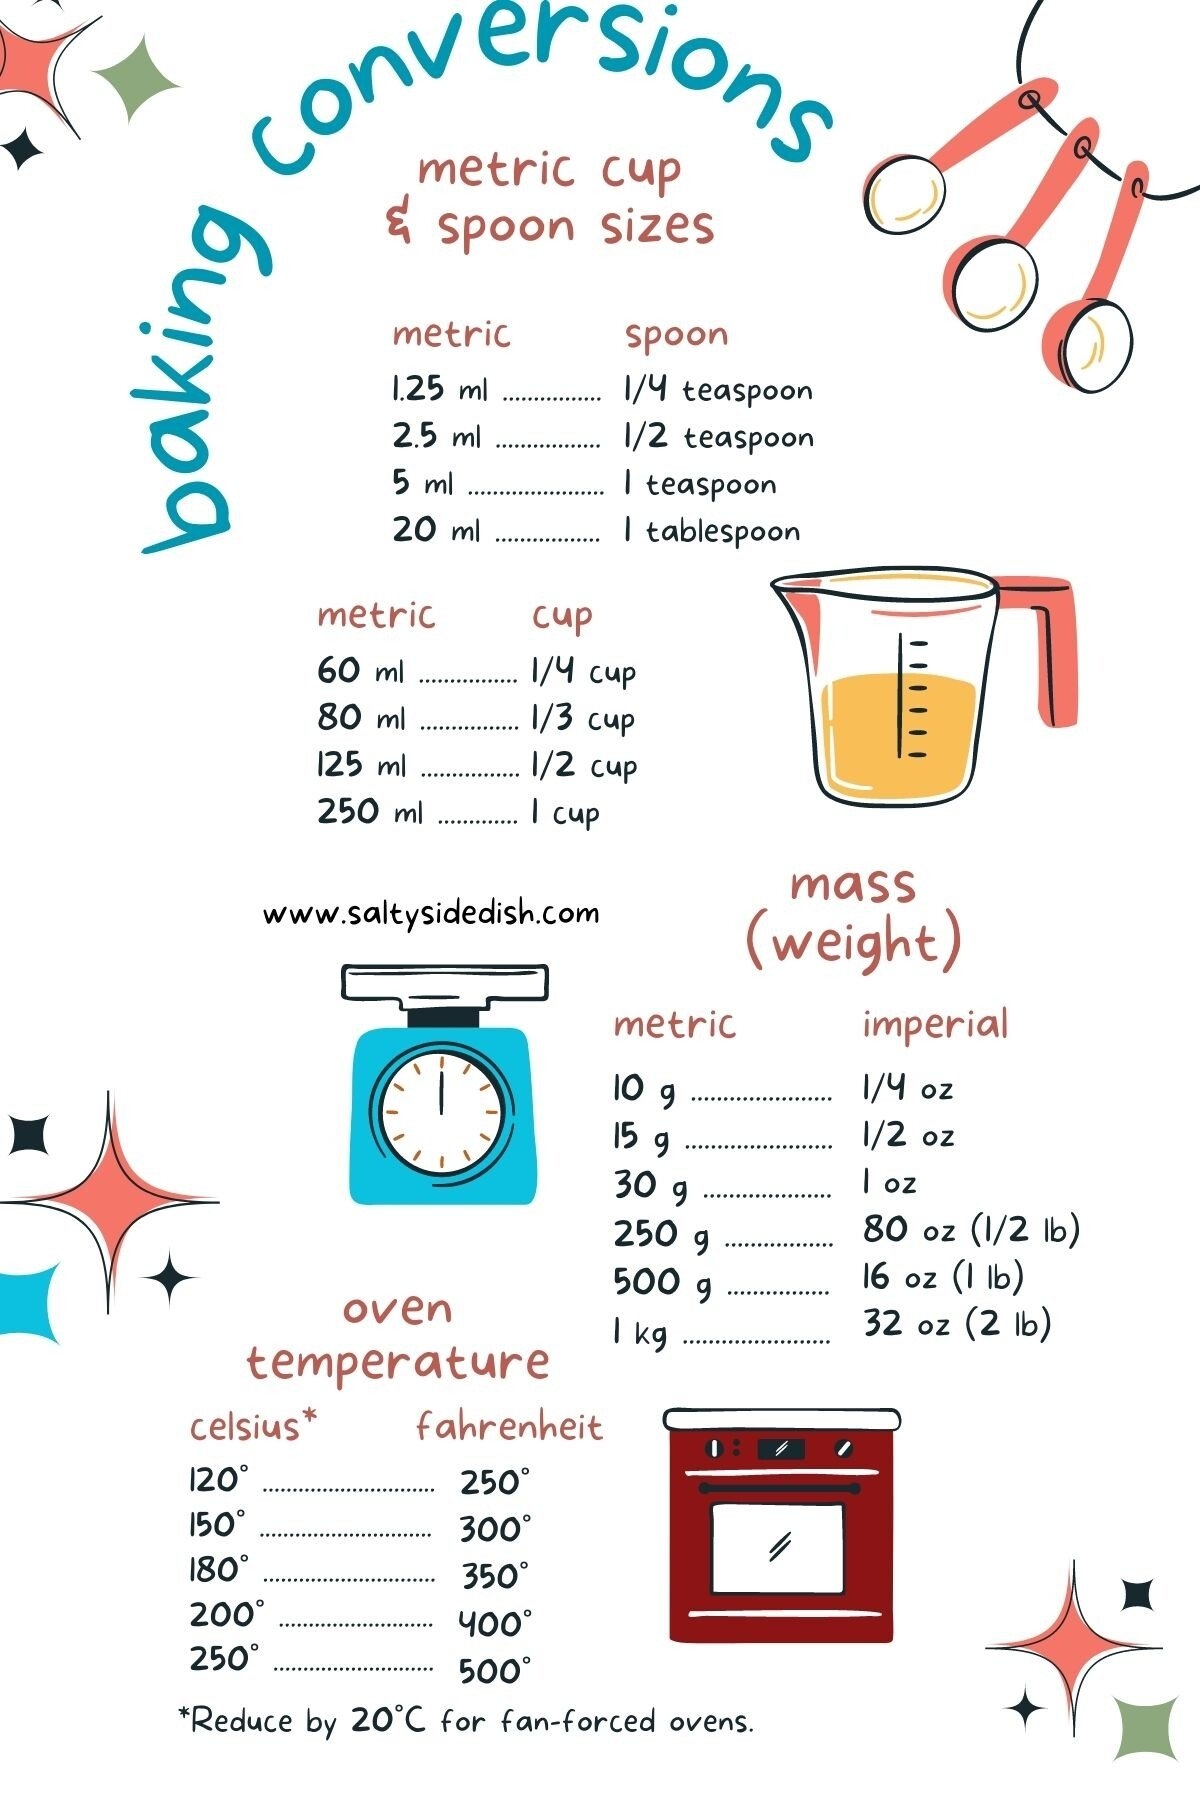 baking conversions
metric cup
& spoon sizes
metric spoon
1.25 ml ................ 1/4 teaspoon
2.5 ml ................. 1/2 teaspoon
5 ml ...................... 1 teaspoon
20 ml ................. 1 tablespoon
metric cup
60 ml ................ 1/4 cup
80 ml ................ 1/3 cup
125 ml ................ 1/2 cup
250 ml ............. 1 cup
www.saltysidedish.com
mass
(weight)
metric imperial
10 g ....................... 1/4 oz
15 g ........................ 1/2 oz
30 g ..................... 1 oz
250 g .................. 80 oz (1/2 lb)
500 g ................. 16 oz (1 lb)
1 kg ........................ 32 oz (2 lb)
oven
temperature
celsius* fahrenheit
120° ............................ 250°
150° ............................ 300°
180° ............................ 350°
200° ......................... 400°
250° .......................... 500°
*Reduce by 20°C for fan-forced ovens.